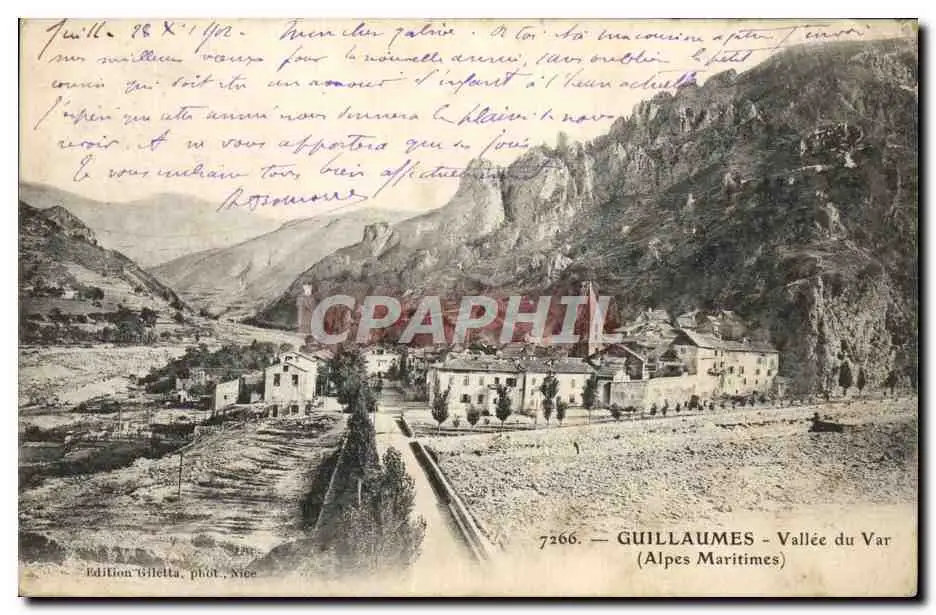 28 Xbre 1902 Mon cher A toi et à ma cousine
mes meilleurs vœux pour la nouvelle année, sans oublier le petit
cousin qui doit être un amour d'enfant à l'heure actuelle
J'espère que cette année nous donnera le plaisir de nous
revoir et ne vous apportera que des joies
Je vous embrasse tous bien affectueusement
CPARHI
7266. — GUILLAUMES - Vallée du Var
(Alpes Maritimes)
Edition Giletta, phot., Nice